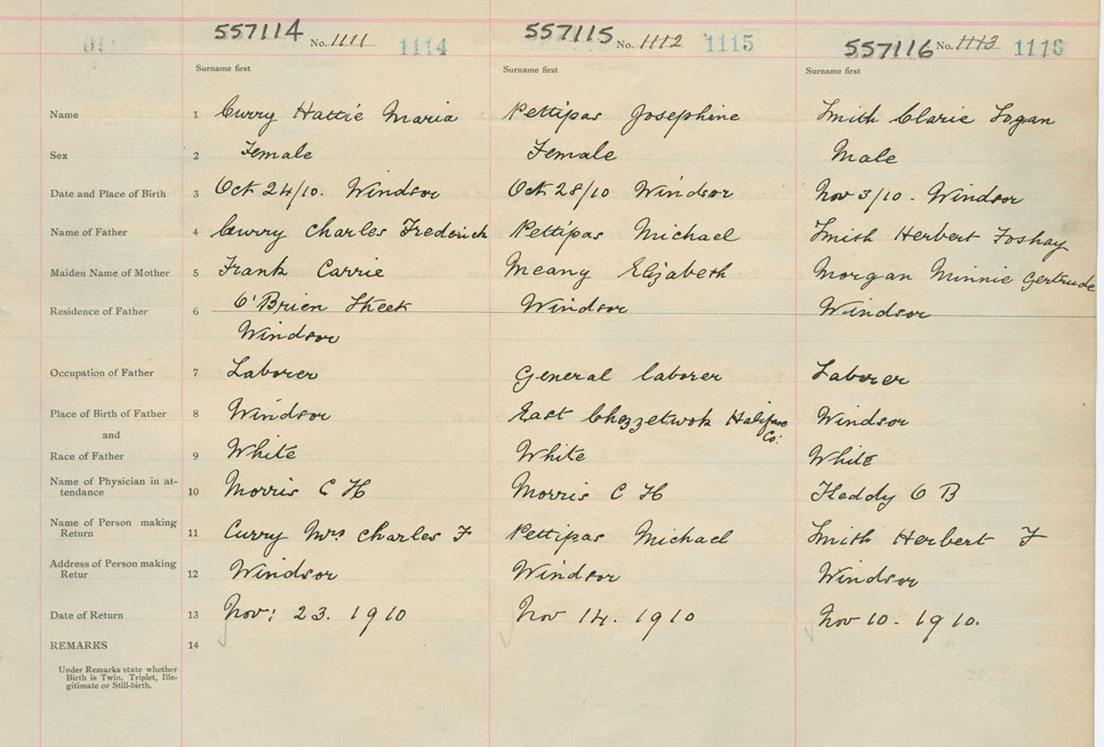 557114 No. 1111 1114 557115 No. 1112 1115 557116 No. 1113 1116
Surname first Surname first Surname first
Name 1 Curry Hattie Maria Pettipas Josephine Smith Clarie Logan
Sex 2 Female Female Male
Date and Place of Birth 3 Oct 24/10. Windsor Oct 28/10 Windsor Nov 3/10. Windsor
Name of Father 4 Curry Charles Frederick Pettipas Michael Smith Herbert Foshay
Maiden Name of Mother 5 Frank Carrie Meany Elizabeth Morgan Minnie Gertrude
Residence of Father 6 O'Brien Street Windsor Windsor
Windsor
Occupation of Father 7 Laborer General laborer Laborer
Place of Birth of Father 8 Windsor East Chezzetwok Halifax Co: Windsor
and
Race of Father 9 White White White
Name of Physician in at-
tendance 10 Morris C H Morris C H Keddy O B
Name of Person making
Return 11 Curry Mrs Charles F Pettipas Michael Smith Herbert F
Address of Person making
Retur 12 Windsor Windsor Windsor
Date of Return 13 Nov: 23. 1910 Nov 14. 1910 Nov 10. 1910.
REMARKS 14
Under Remarks state whether
Birth is Twin, Triplet, Ille-
gitimate or Still-birth.